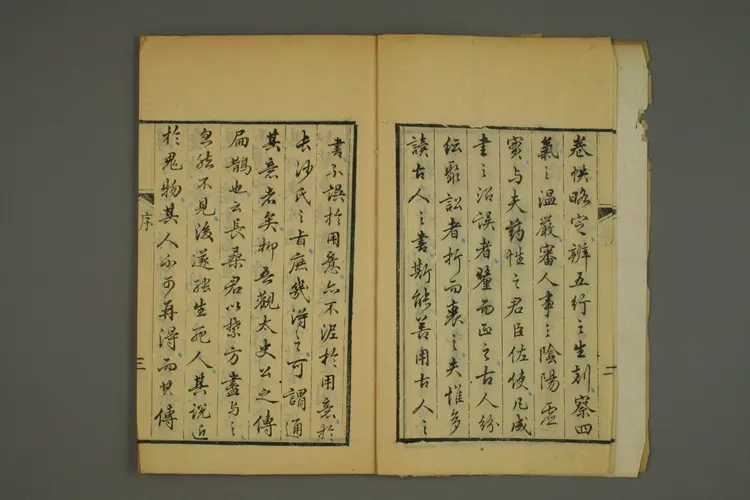 卷帙略定辨五行之生剋察四
氣之温嚴審人事之陰陽虛
實与夫药性之君臣佐使凡成
書之沿誤者釐而正之古人紛
紜聚訟者折而衷之夫惟多
讀古人之書斯能善用古人之
二
書不誤於用意亦不泥於用意於
長沙氏之旨庶幾得之可謂通
其意者矣抑吾觀太史公之傳
扁鵲也云長桑君以禁方盡与之
忽然不見後遂能生死人其說近
於鬼物其人不可再得而其傳
序
三